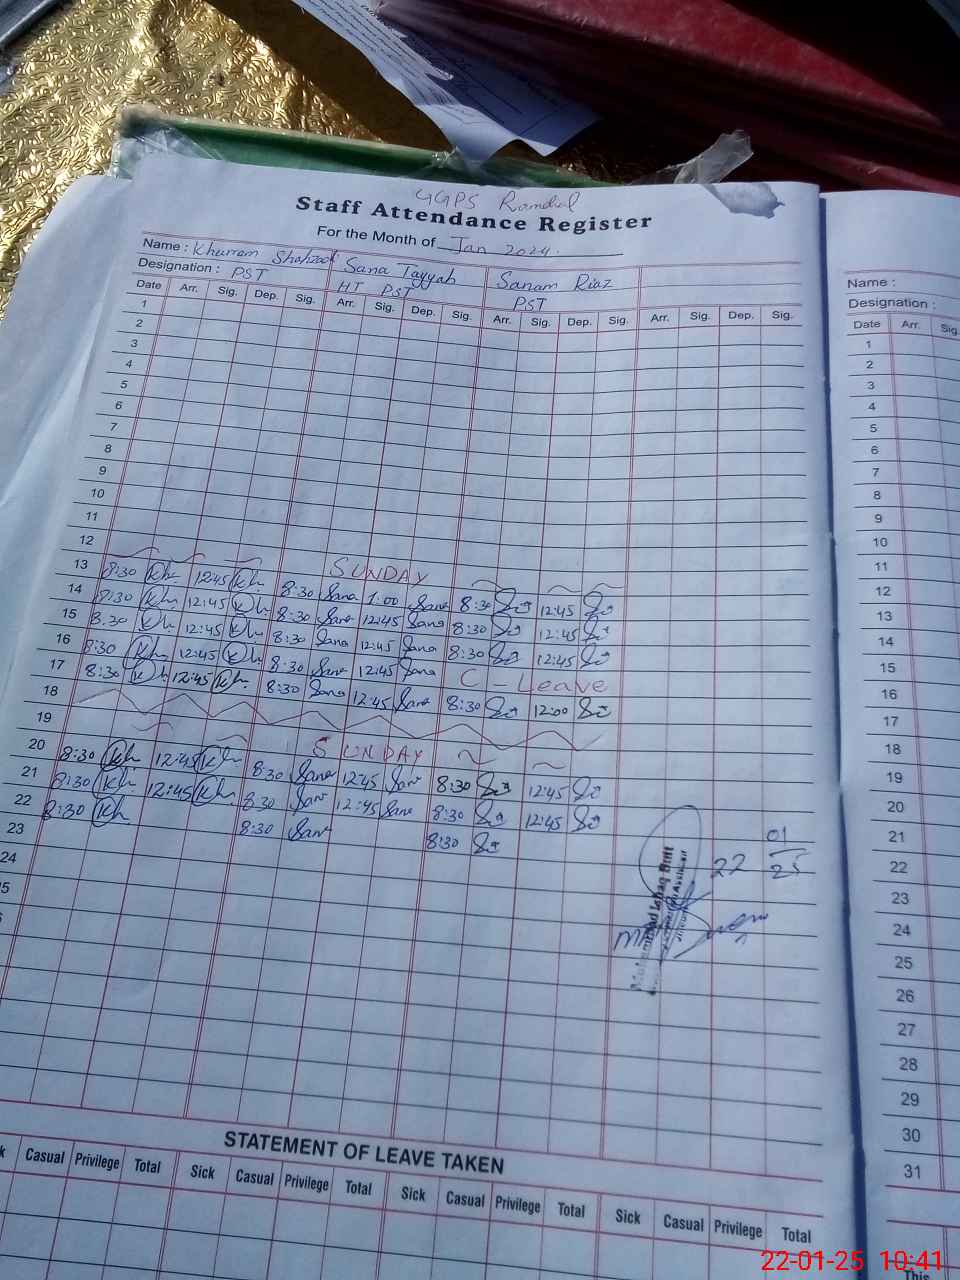 GGPS Ramdial
Staff Attendance Register
For the Month of Jan 2024.
Name : Khurram Shahzad Sana Tayyab Sanam Riaz
Designation : PST HT PST PST
Date Arr. Sig. Dep. Sig. Arr. Sig. Dep. Sig. Arr. Sig. Dep. Sig. Arr. Sig. Dep. Sig.
1
2
3
4
5
6
7
8
9
10
11
12 SUNDAY
13 8:30 Kh 12:45 Kh 8:30 Sana 1:00 Sana 8:30 12:45
14 8:30 Kh 12:45 Kh 8:30 Sana 12:45 Sana 8:30 12:45
15 8:30 Kh 12:45 Kh 8:30 Sana 12:45 Sana 8:30 12:45
16 8:30 Kh 12:45 Kh 8:30 Sana 12:45 Sana C - Leave
17 8:30 Kh 12:45 Kh 8:30 Sana 12:45 Sana 8:30 12:00
18
19 SUNDAY
20 8:30 Kh 12:45 Kh 8:30 Sana 12:45 Sana 8:30 12:45
21 8:30 Kh 12:45 Kh 8:30 Sana 12:45 Sana 8:30 12:45
22 8:30 Kh 8:30 Sana 8:30
23
24
22 01
25
Muhammad Ishaq Butt
STATEMENT OF LEAVE TAKEN
Casual Privilege Total Sick Casual Privilege Total Sick Casual Privilege Total Sick Casual Privilege Total
Name :
Designation :
Date Arr. Sig.
1
2
3
4
5
6
7
8
9
10
11
12
13
14
15
16
17
18
19
20
21
22
23
24
25
26
27
28
29
30
31
This
22-01-25 10:41